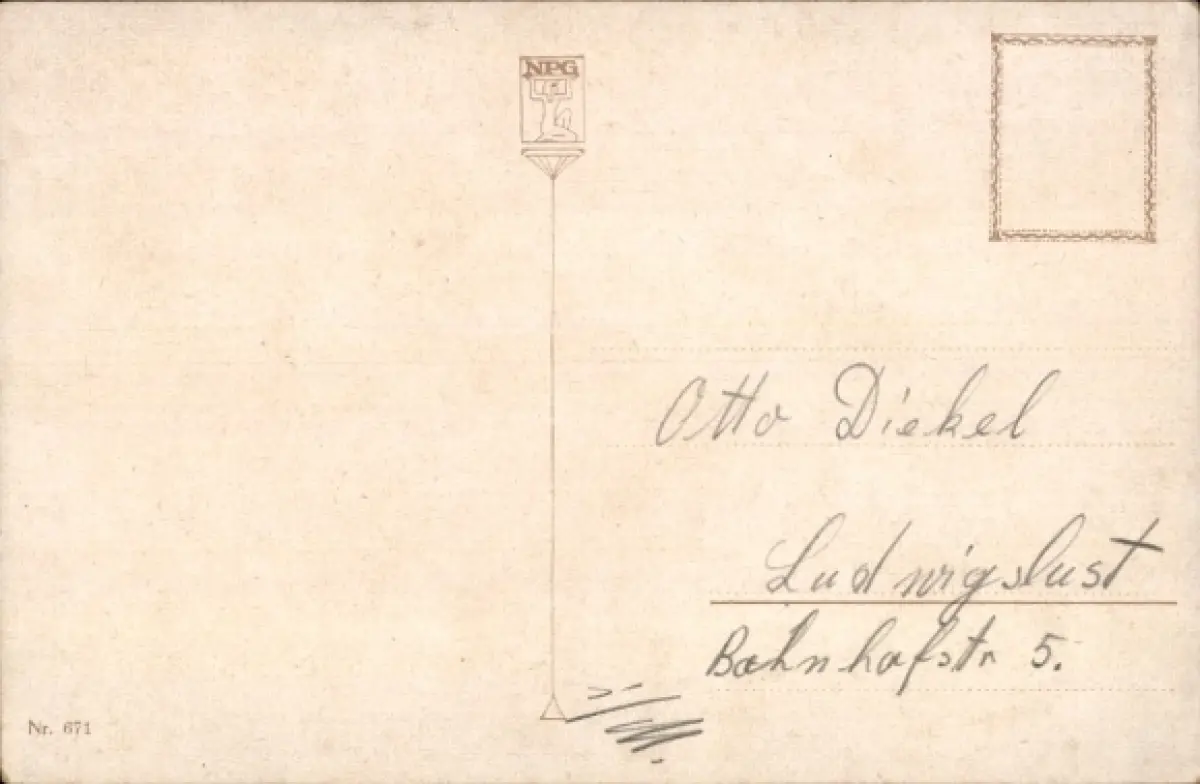 NPG
Otto Diekel
Ludwigslust
Bahnhofstr 5.
Nr. 671